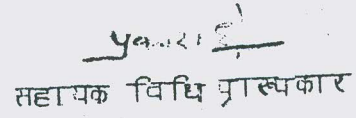 सहायक विधि प्रारूपकार